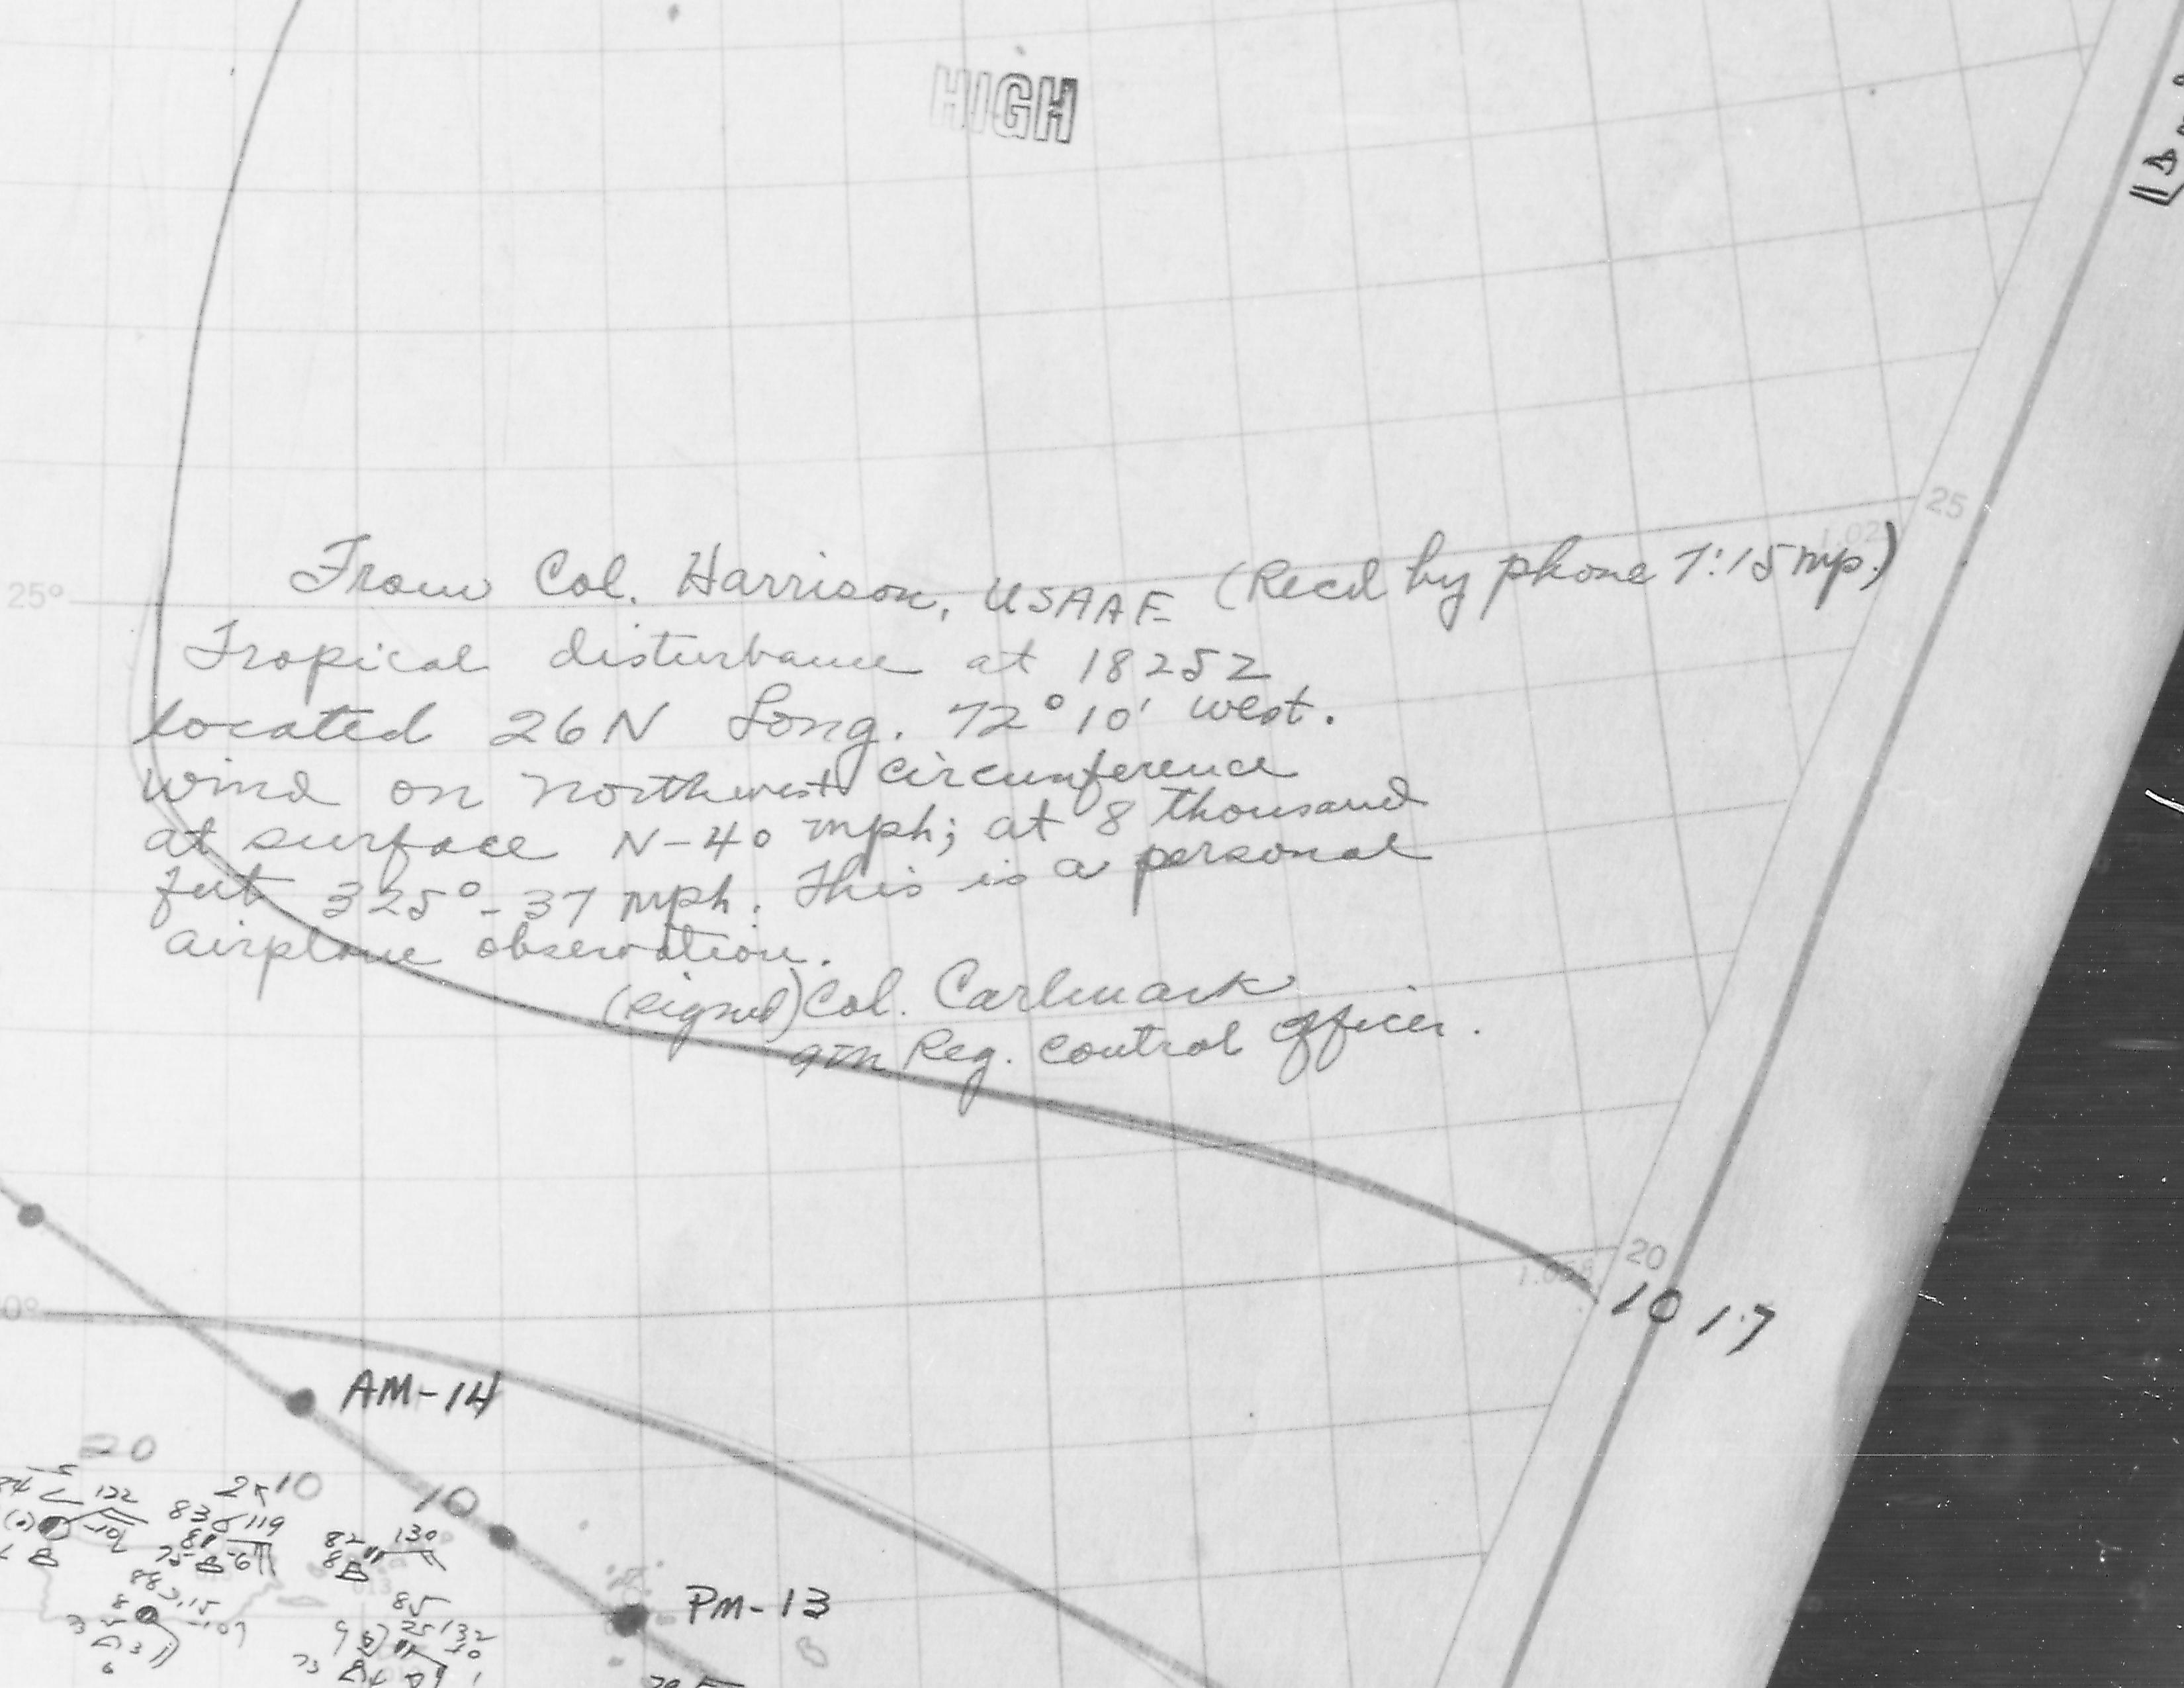 HIGH
25
From Col. Harrison, USAAF (Recd by phone 7:15 mp.)
25°
Tropical disturbance at 1825Z
located 26N Long. 72° 10' west.
wind on northwest circumference
at surface N-40 mph; at 8 thousand
feet 325° - 37 mph. This is a personal
airplane observation.
(signed) Col. Carlmark
9th Reg. Control officer.
20
1017
AM-14
20
122
2 10
83 119
10
82 130
PM-13
85